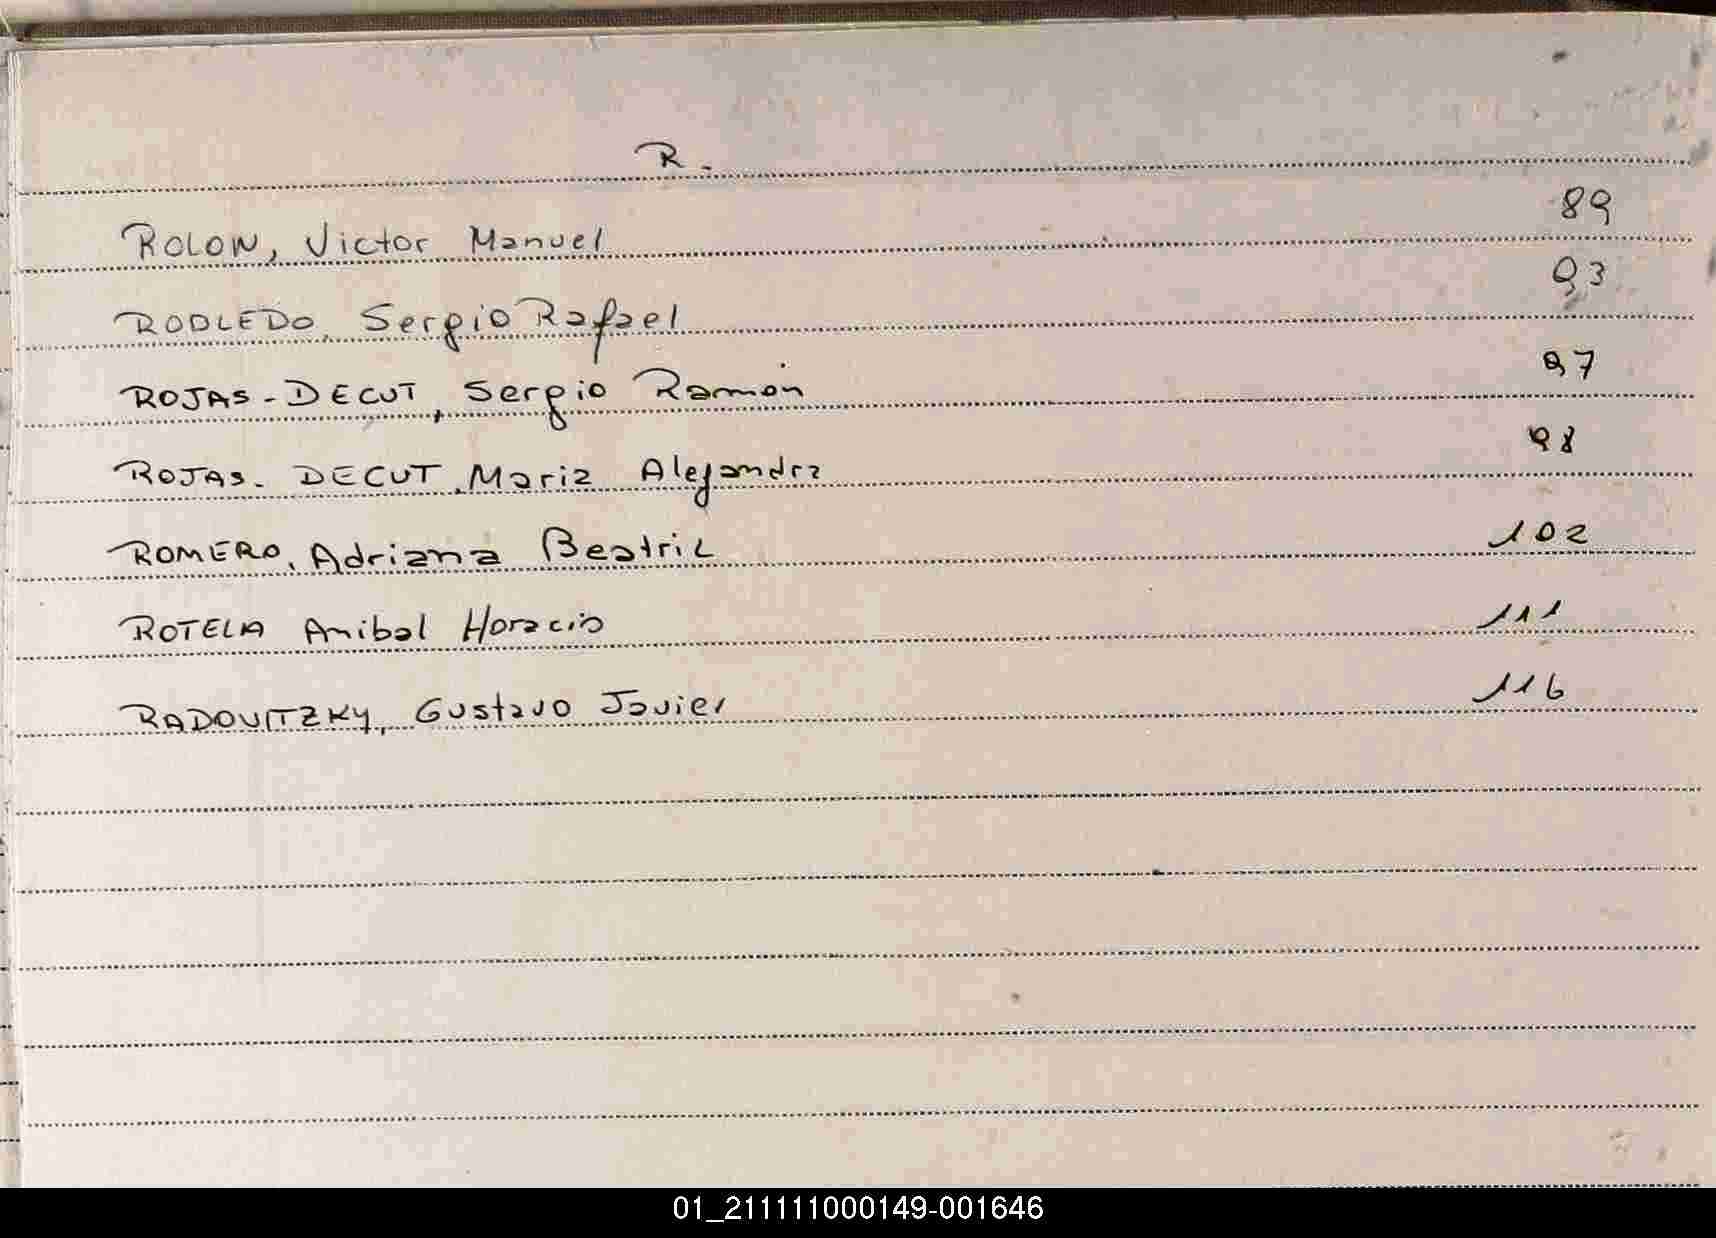 R.
ROLON, Victor Manuel 89
RODLEDO, Sergio Rafael 93
ROJAS-DECUT, Sergio Ramón 97
ROJAS-DECUT, Maria Alejandra 98
ROMERO, Adriana Beatriz 102
ROTELA Anibal Horacio 111
RADOVITZKY, Gustavo Javier 116
01_211111000149-001646